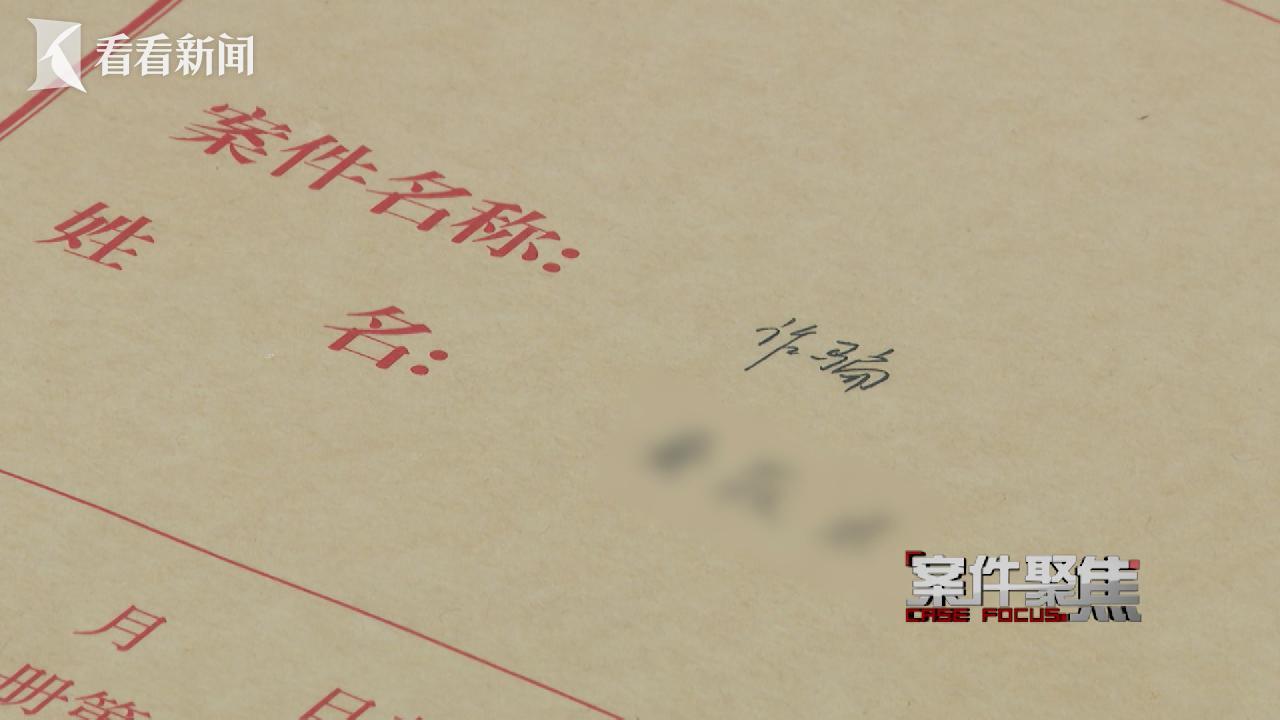 看看新闻
案件名称：
诈骗
姓名：
案件聚焦
CASE FOCUS
月
日
册第